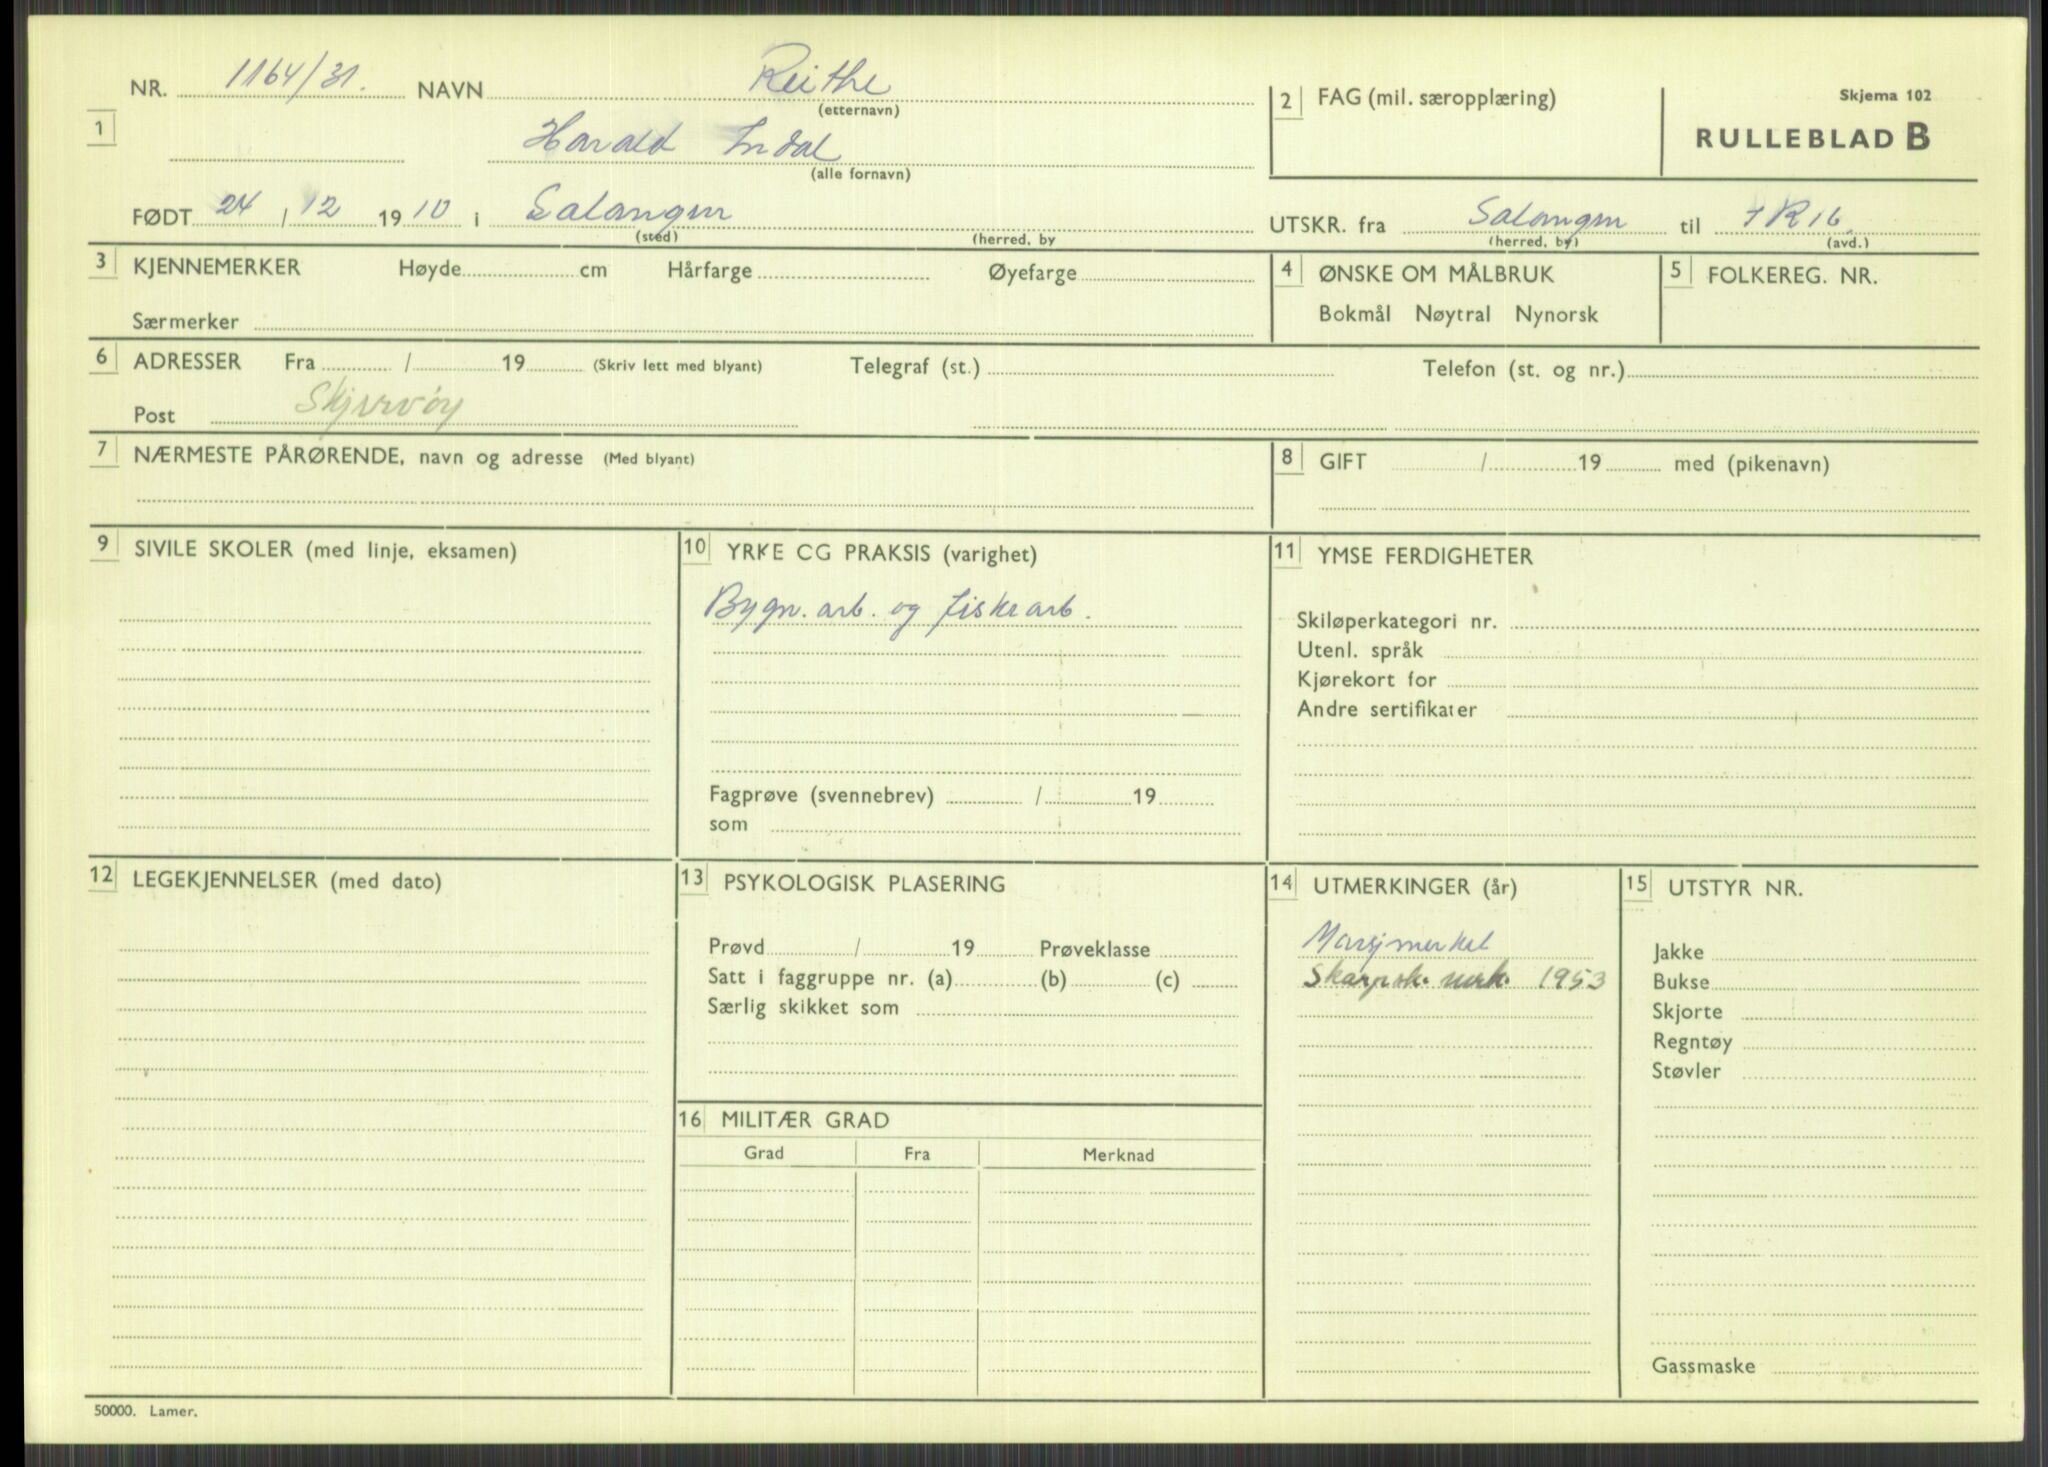 NR. 1164/31. NAVN Reithe
(etternavn)
1
Harald Indal
(alle fornavn)
FØDT 24 / 12 1910 i Salangen
(sted) (herred, by
2 FAG (mil. særopplæring)
Skjema 102
RULLEBLAD B
UTSKR. fra Salangen til IR16.
(herred, by) (avd.)
3 KJENNEMERKER Høyde cm Hårfarge Øyefarge
Særmerker
4 ØNSKE OM MÅLBRUK
Bokmål Nøytral Nynorsk
5 FOLKEREG. NR.
6 ADRESSER Fra / 19 (Skriv lett med blyant) Telegraf (st.) Telefon (st. og nr.)
Post Skjervøy
7 NÆRMESTE PÅRØRENDE, navn og adresse (Med blyant)
8 GIFT / 19 med (pikenavn)
9 SIVILE SKOLER (med linje, eksamen)
10 YRKE CG PRAKSIS (varighet)
Bygn. arb. og fiskearb.
Fagprøve (svennebrev) / 19
som
11 YMSE FERDIGHETER
Skiløperkategori nr.
Utenl. språk
Kjørekort for
Andre sertifikater
12 LEGEKJENNELSER (med dato)
13 PSYKOLOGISK PLASERING
Prøvd / 19 Prøveklasse
Satt i faggruppe nr. (a) (b) (c)
Særlig skikket som
14 UTMERKINGER (år)
Marsjmerket
Skarpsk. merk. 1953
15 UTSTYR NR.
Jakke
Bukse
Skjorte
Regntøy
Støvler
Gassmaske
16 MILITÆR GRAD
Grad Fra Merknad
50000. Lamer.